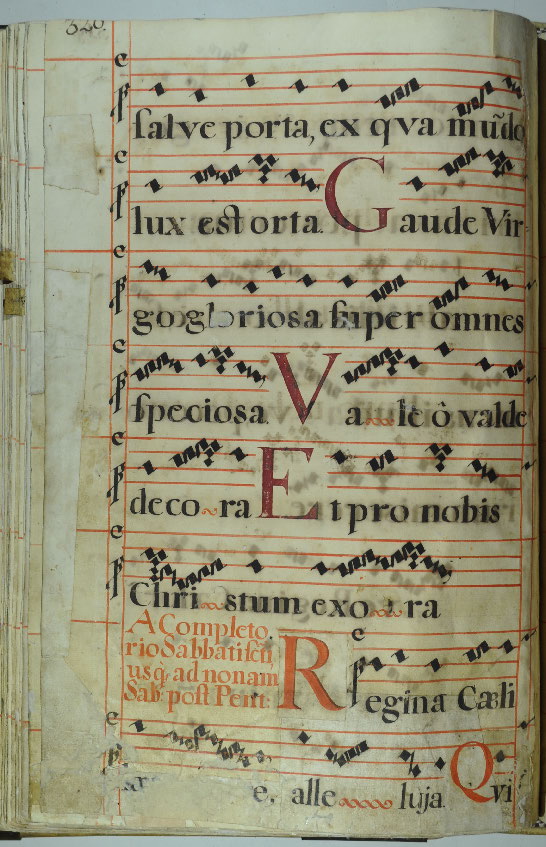 320
salve porta, ex qva mũdo
lux est orta. Gaude Vir-
go gloriosa super omnes
speciosa. Va le ô valde
deco ra Et pro nobis
Chri stum exo ra
A Completo.
rio Sabbati sčti
usq; ad nonam
Sab. post Pent:
Regina Cæli
e, alle luja. Qvi